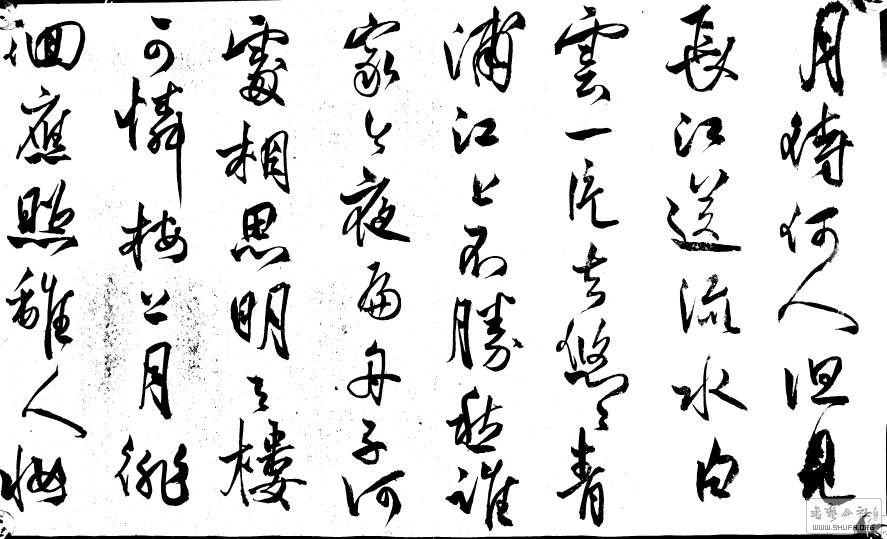 月待何人但見
長江送流水白
雲一片去悠々青
浦江上不勝愁誰
家今夜扁舟子何
處相思明々樓
可憐樓上月徘
徊應照離人妝
書藝公社
WWW.SHUFA.ORG